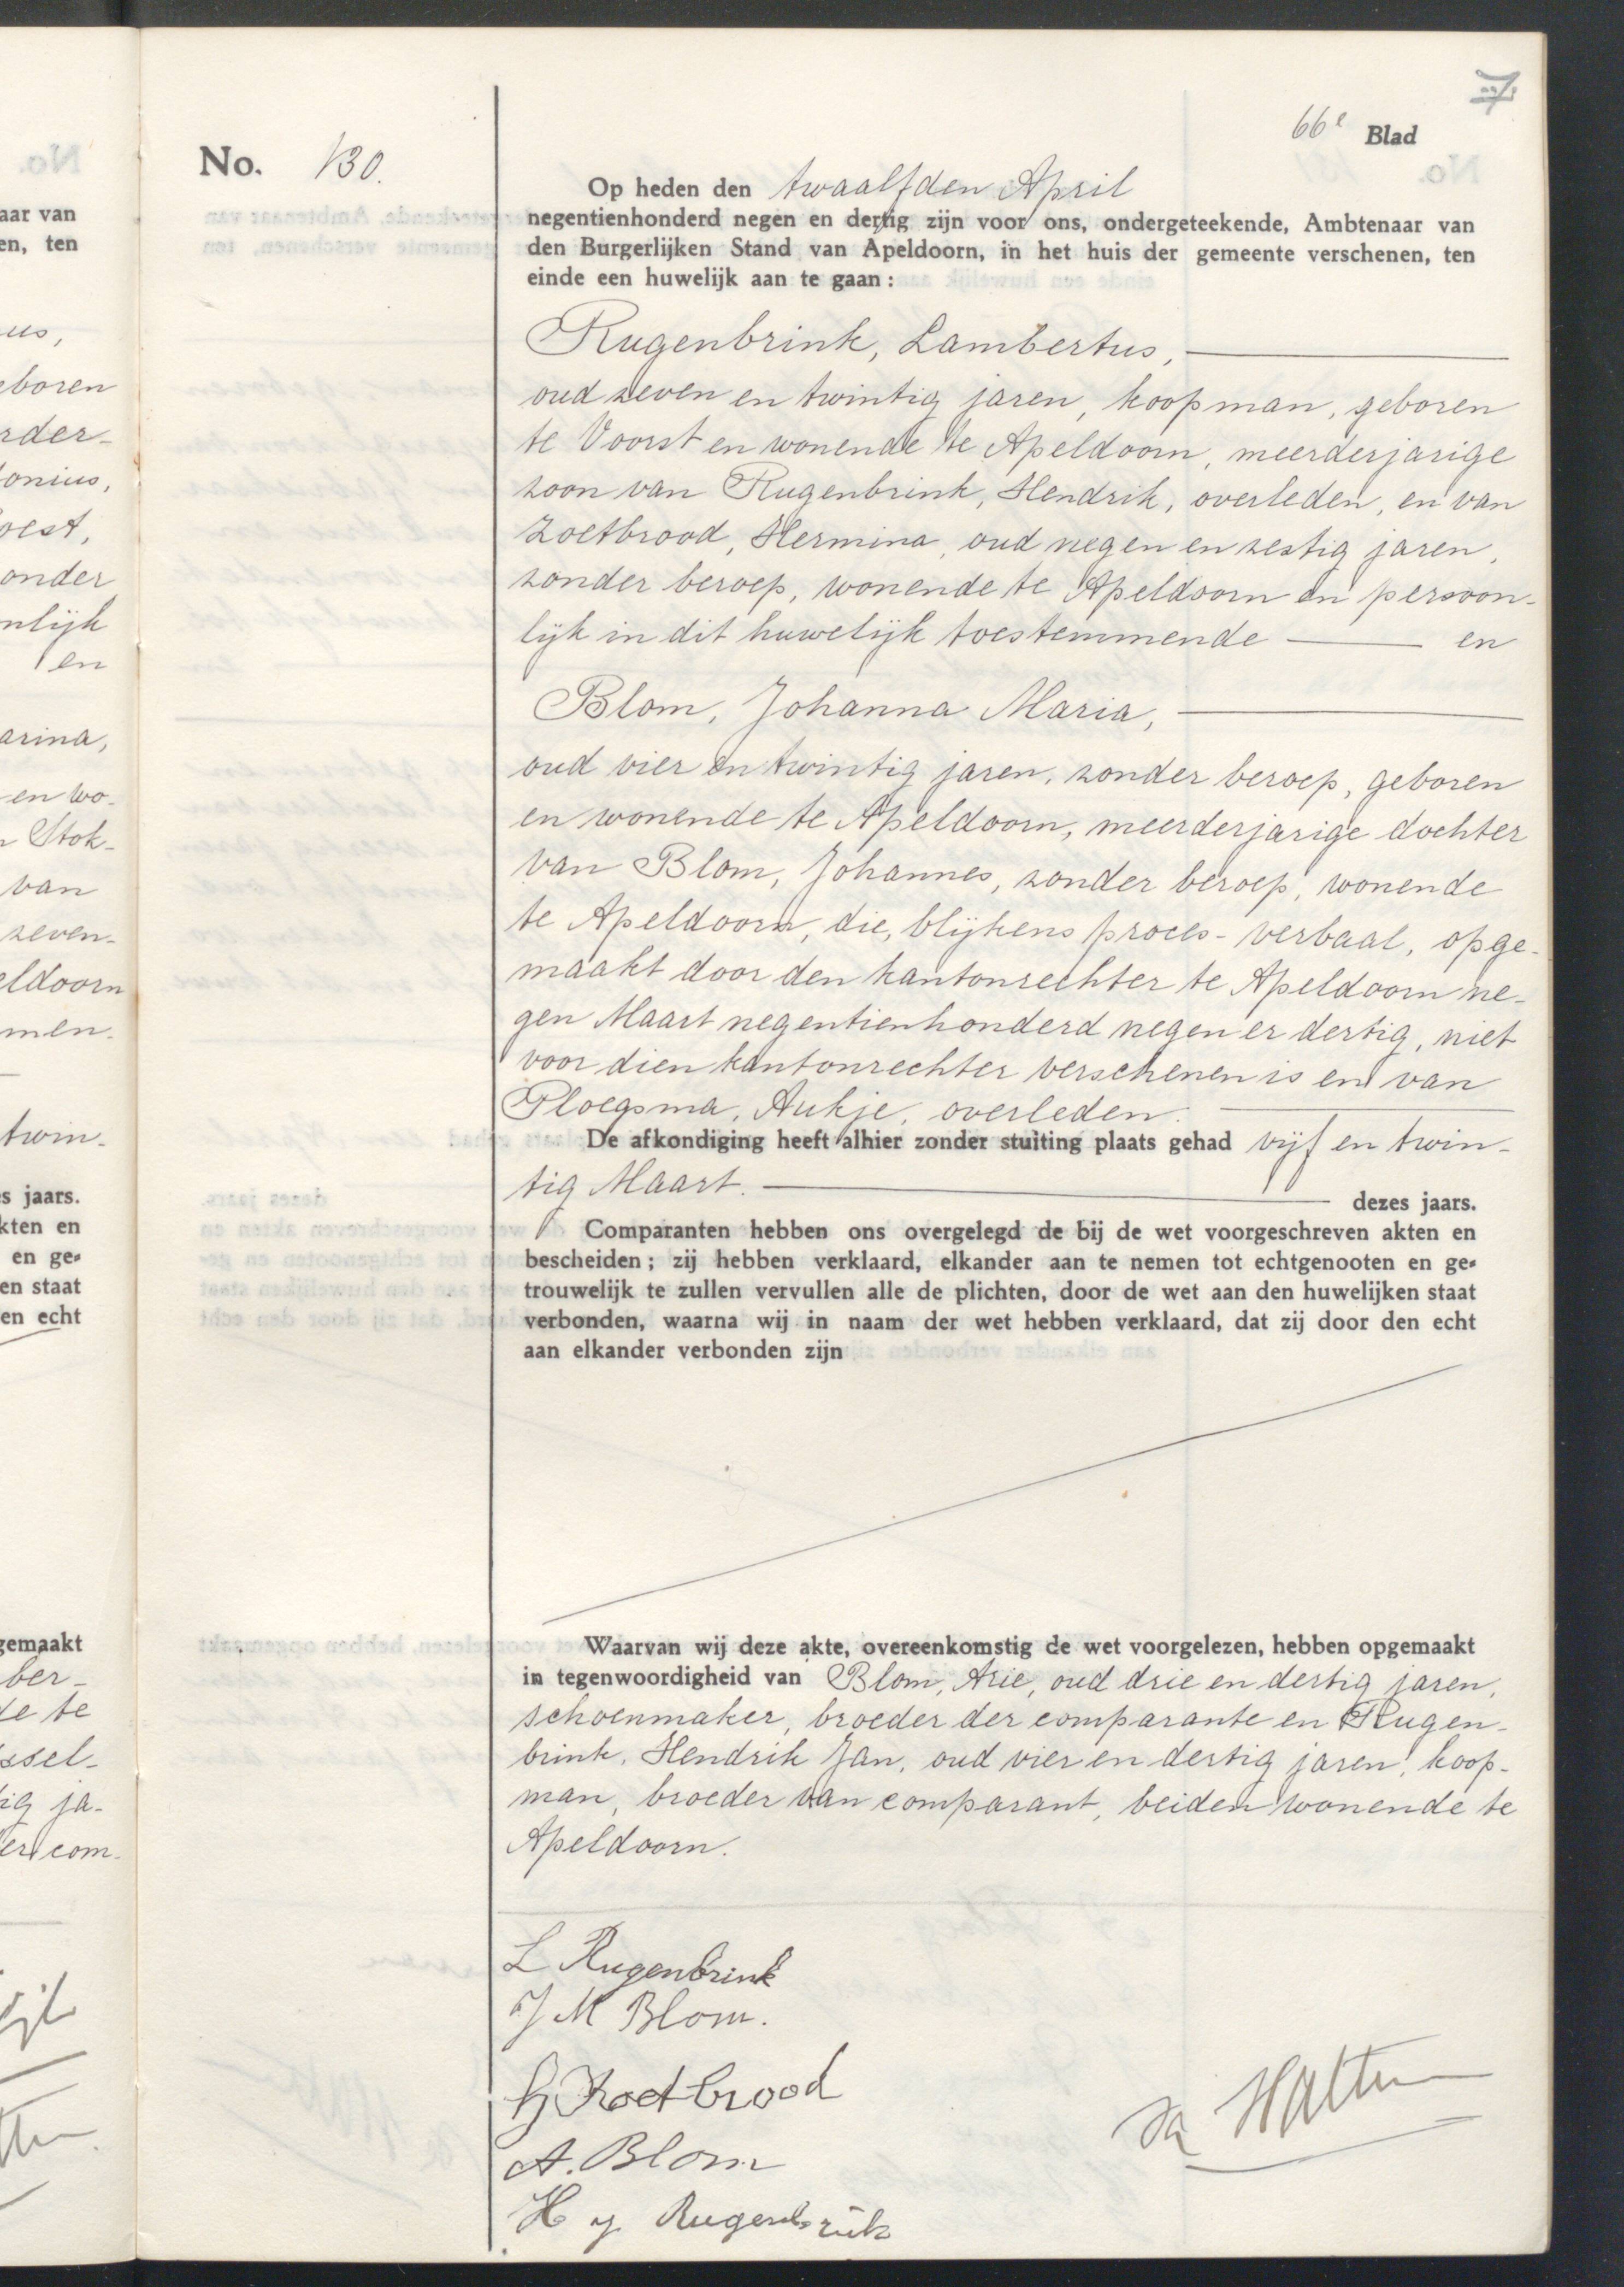 66e Blad
No. 130.
Op heden den twaalfden April
negentienhonderd negen en dertig zijn voor ons, ondergeteekende, Ambtenaar van
den Burgerlijken Stand van Apeldoorn, in het huis der gemeente verschenen, ten
einde een huwelijk aan te gaan:
Rugenbrink, Lambertus,
oud zeven en twintig jaren, koopman, geboren
te Voorst en wonende te Apeldoorn, meerderjarige
zoon van Rugenbrink, Hendrik, overleden, en van
Zoetbrood, Hermina, oud negen en zestig jaren,
zonder beroep, wonende te Apeldoorn en persoon-
lijk in dit huwelijk toestemmende en
Blom, Johanna Maria,
oud vier en twintig jaren, zonder beroep, geboren
en wonende te Apeldoorn, meerderjarige dochter
van Blom, Johannes, zonder beroep, wonende
te Apeldoorn, die, blijkens proces-verbaal, opge-
maakt door den kantonrechter te Apeldoorn ne-
gen Maart negentienhonderd negen en dertig, niet
voor dien kantonrechter verschenen is en van
Ploegsma, Aukje, overleden.
De afkondiging heeft alhier zonder stuiting plaats gehad vijf en twin-
tig Maart. dezes jaars.
Comparanten hebben ons overgelegd de bij de wet voorgeschreven akten en
bescheiden; zij hebben verklaard, elkander aan te nemen tot echtgenooten en ge-
trouwelijk te zullen vervullen alle de plichten, door de wet aan den huwelijken staat
verbonden, waarna wij in naam der wet hebben verklaard, dat zij door den echt
aan elkander verbonden zijn
Waarvan wij deze akte, overeenkomstig de wet voorgelezen, hebben opgemaakt
in tegenwoordigheid van Blom, Arie, oud drie en dertig jaren,
schoenmaker, broeder der comparante en Rugen-
brink, Hendrik Jan, oud vier en dertig jaren, koop-
man, broeder van comparant, beiden wonende te
Apeldoorn.
L Rugenbrink
J M Blom.
H Zoetbrood
A. Blom
H J Rugenbrink